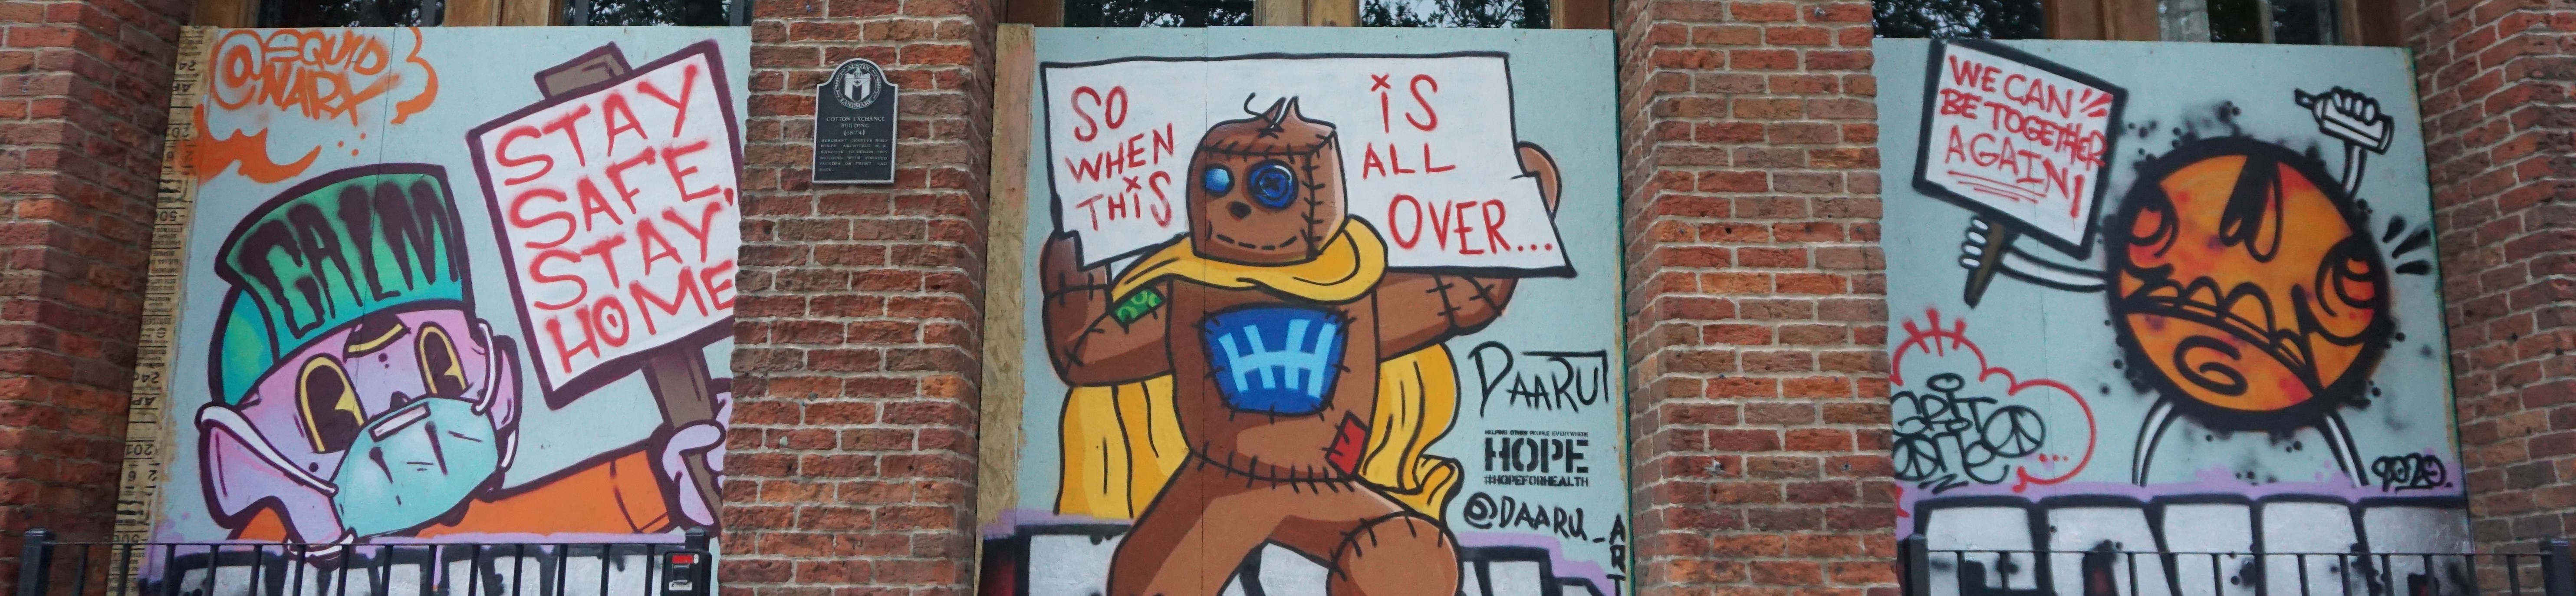 @=QUID
NARX
CALM
STAY
SAFE,
STAY
HOME
AUSTIN
LANDMARK
COTTON EXCHANGE
BUILDING
(1874)
SO
WHEN
THiS
iS
ALL
OVER...
HH
DAARU
HELPING OTHER PEOPLE EVERYWHERE
HOPE
#HOPEFORHEALTH
@DAARU_ART
WE CAN
BE TOGETHER
AGAIN!
2020